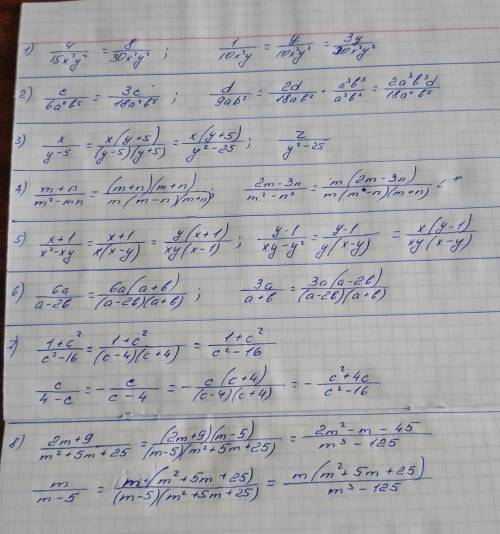 1) 4/(15x²y²) = 8/(30x²y²) ; 1/(10x²y) = y/(10x²y²) = 3y/(30x²y²)
2) c/(6a⁴b⁵) = 3c/(18a⁴b⁵) ; d/(9ab²) = 2d/(18ab²) · a³b³/a³b³ = 2a³b³d/(18a⁴b⁵)
3) x/(y-5) = x(y+5)/((y-5)(y+5)) = x(y+5)/(y²-25) ; z/(y²-25)
4) (m+n)/(m²-mn) = (m+n)(m+n)/(m(m-n)(m+n)) ; (2m-3n)/(m²-n²) = m(2m-3n)/(m(m-n)(m+n))
5) (x+1)/(x²-xy) = (x+1)/(x(x-y)) = y(x+1)/(xy(x-1)) ; (y-1)/(xy-y²) = (y-1)/(y(x-y)) = x(y-1)/(xy(x-y))
6) 6a/(a-2b) = 6a(a+b)/((a-2b)(a+b)) ; 3a/(a+b) = 3a(a-2b)/((a-2b)(a+b))
7) (1+c²)/(c²-16) = (1+c²)/((c-4)(c+4)) = (1+c²)/(c²-16)
c/(4-c) = -c/(c-4) = -c(c+4)/((c-4)(c+4)) = -(c²+4c)/(c²-16)
8) (2m+9)/(m²+5m+25) = (2m+9)(m-5)/((m-5)(m²+5m+25)) = (2m²-m-45)/(m³-125)
m/(m-5) = m·(m²+5m+25)/((m-5)(m²+5m+25)) = m(m²+5m+25)/(m³-125)